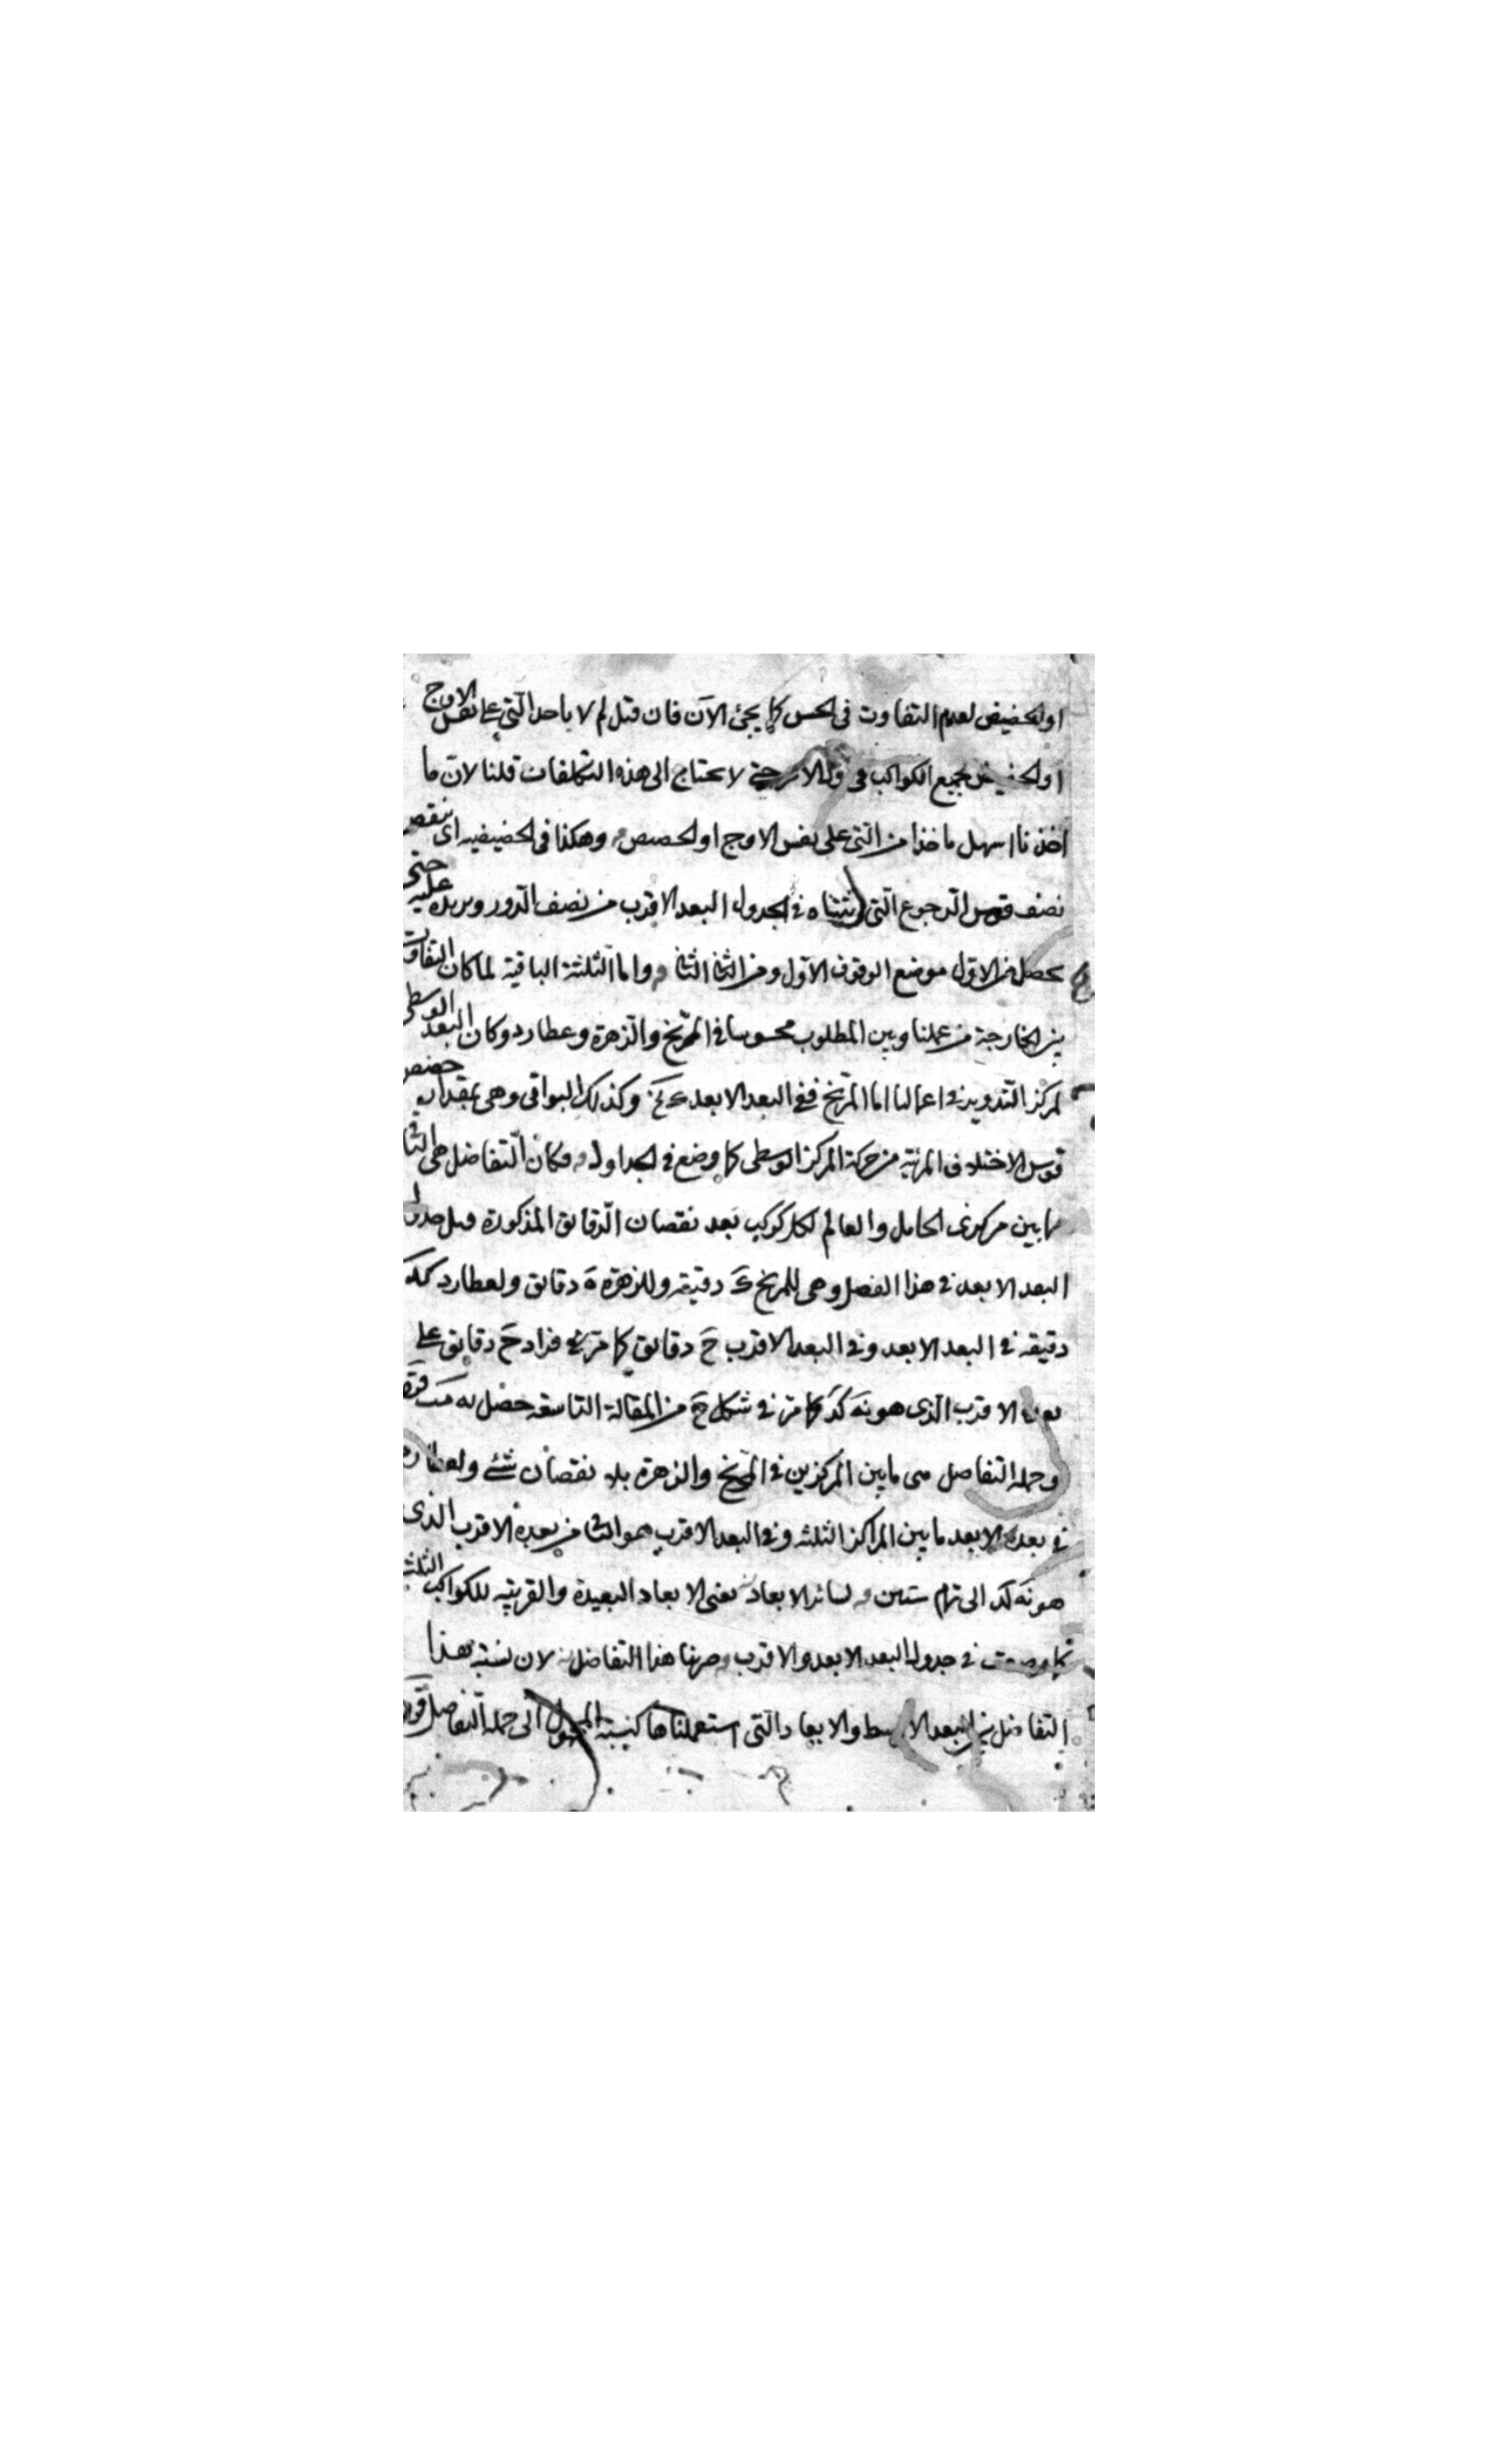 او الحضيض لعدم التفاوت فى الحس كما يجئ الآن فان قيل لم لا ياخذ التى على نفس الاوج
او الحضيض لجميع الكواكب فى لا يحتاج الى هذه التكلفات قلنا لانّ ما
اخذنا اسهل ماخذا من التى على نفس الاوج او وهكذا فى الحضيضيه اى ينقص
نصف قوس الرجوع التى اثبتناه فى الجدول البعد الاقرب من نصف الدور ويزيده عليه حتى
يحصل من الاول موضع الوقوف الاول ومن الثانى الثانى واما الثلثة الباقية لما كان التفاوت
بين الخارجة من عملنا وبين المطلوب محسوسا فى المريخ والزهرة وعطارد وكان البعد الوسطى
لمركز التدوير فى اعمالنا اما المريخ ففى البعد الابعد وكذلك البواقى وهى بمقدار
قوس الاختلاف المرئية من حركة المركز الوسطى كما وضع فى الجداول فكان التفاضل هى
ما بين مركزى الحامل والعالم لكل كوكب بعد نقصان الدقائق المذكورة
البعد الابعد فى هذا الفصل وهى للمريخ دقيقه وللزهرة ه دقائق ولعطارد
دقيقه فى البعد الابعد وفى البعد الاقرب ح دقائق كما مرّ فزاد ح دقائق على
بعده الاقرب الذى هو نه لد كما مرّ فى شكل ح من المقالة التاسعه حصل نه مب
وجملة التفاضل هى ما بين المركزين فى المريخ والزهرة بلا نقصان شئ ولعطارد
فى بعده الابعد ما بين المراكز الثلثه وفى البعد الاقرب هو الباقى من بعده الاقرب الذى
هو نه لد الى تمام ستين ولسائر الابعاد يعنى الابعاد البعيدة والقريبه للكواكب الثلثة
كما وضعت فى جدول البعد الابعد والاقرب هذا التفاضل لان نسبة هذا
التفاضل بين البعد الاوسط والابعاد التى استعملناها كنسبة الى جملة التفاضل